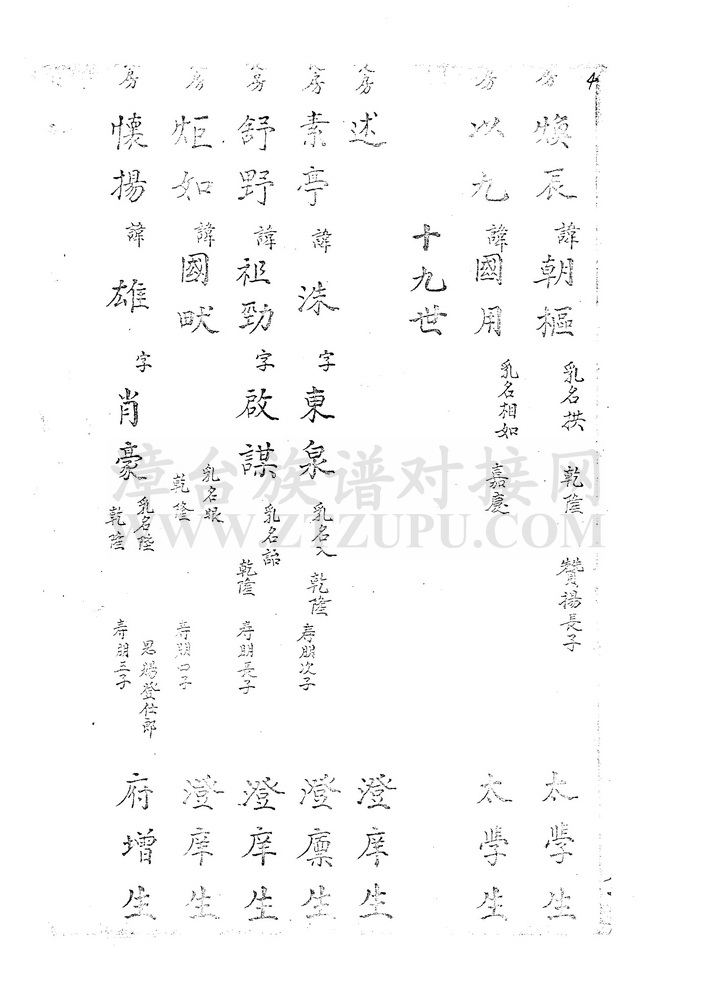 4
房 煥辰 諱 朝樞 乳名拱 乾隆 贊揚長子 太學生
房 以九 諱 國用 乳名相如 嘉慶 太學生
十九世
房 述 澄庠生
房 素亭 諱 洙 字 東泉 乳名入 乾隆 寿朋次子 澄廩生
房 舒野 諱 祖勁 字 啟謀 乳名詒 乾隆 寿朋長子 澄庠生
房 炬如 諱 國畎 乳名眼 乾隆 寿朋四子 澄庠生
房 懷揚 諱 雄 字 肖豪 乳名陸 乾隆 恩賜登仕郎 寿朋三子 府增生
漳台族谱对接网
WWW.ZTZUPU.COM